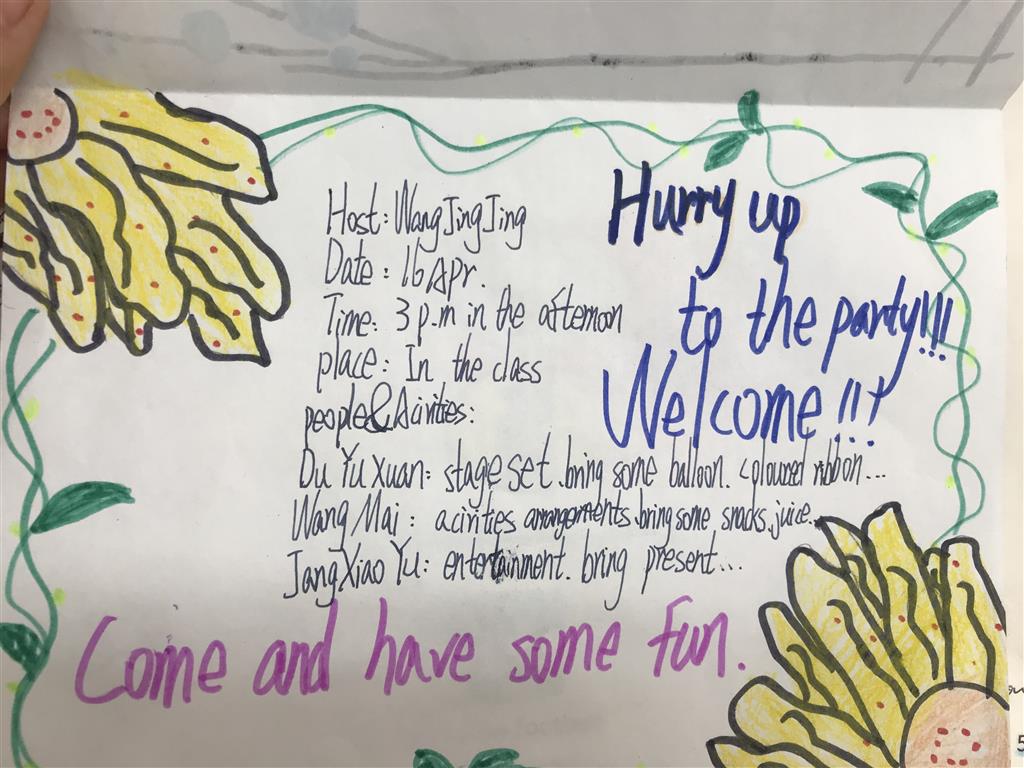 Host: Wang Jing Jing
Date: 16 Apr.
Time: 3 p.m in the afternoon
place: In the class
people & Acivities:
Du Yu Xuan: stage set. bring some balloon. coloured ribbon...
Wang Mai: acivities arrangements. bring some snacks. juice...
Jang Xiao Yu: entertainment. bring present...
Hurry up
to the party!!!
Welcome!!!
Come and have some fun.
5